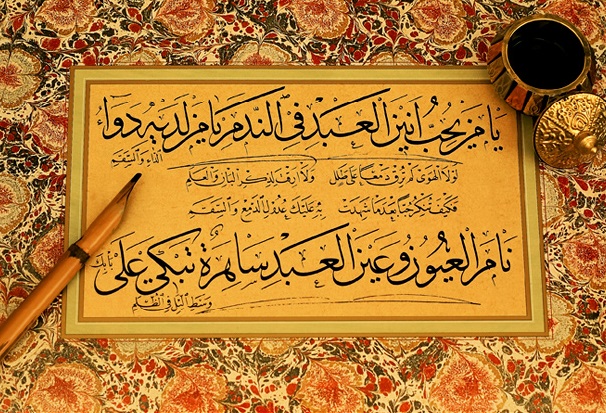 يَا مَنْ يُحِبُّ أَنِينَ الْعَبْدِ فِي النَّدَمِ يَا مَنْ لَدَيْهِ دَوَاءُ
الدَّاءِ وَالسَّقَمِ
لَوْلَا الْهَوَى لَمْ تُرِقْ دَمْعًا عَلَى طَلَلٍ وَلَا أَرِقْتَ لِذِكْرِ الْبَانِ وَالْعَلَمِ
فَكَيْفَ تُنْكِرُ حُبًّا بَعْدَمَا شَهِدَتْ بِهِ عَلَيْكَ عُدُولُ الدَّمْعِ وَالسَّقَمِ
نَامَ الْعُيُونُ وَعَيْنُ الْعَبْدِ سَاهِرَةٌ تَبْكِي عَلَى بَابِكَ
وَسَطَ اللَّيْلِ فِي الظُّلَمِ